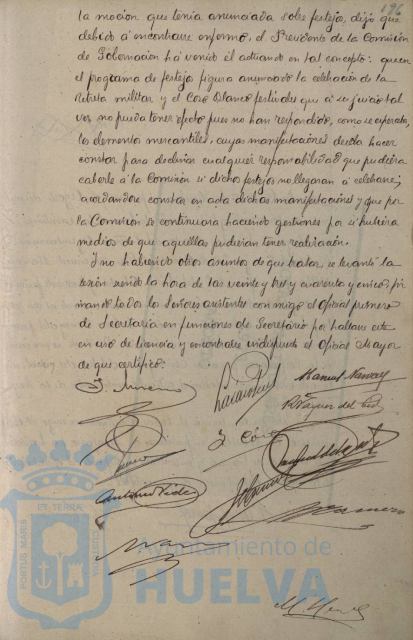 196
la mocion que tenia anunciada sobre festejos, dijo que
debido á encontrarse enfermo, el Presidente de la Comisión
de Gobernacion há venido él actuando en tal concepto: que en
el programa de festejos figura anunciada la celebración de la
Retreta militar y el Coso blanco festivales que á su juicio tal
vez no pueda tener efecto pues no han respondido, como se esperaba,
los elementos mercantiles, cuyas manifestaciones desea hacer
constar para declinar cualquier responsabilidad que pudiera
caberle á la Comisión si dichos festejos no llegaran á celebrarse,
acordandose constar en acta dichas manifestaciones y que por
la Comisión se continuara haciendo gestiones por si hubiera
medios de que aquellas pudieran tener realización.
Y no habiendo otros asuntos de que tratar, se levantó la
sesión siendo la hora de las veinte y tres y cuarenta y cinco, fir
mando todos los Señores asistentes con migo el Oficial primero
de Secretaria en funciones de Secretario por hallarse este
en uso de licencia y encontrarse indispuesto el Oficial Mayor
de que certifico:
Manuel
Antonio
PORTUS MARIS
ET TERRÆ
CUSTODIA
Ayuntamiento de
HUELVA